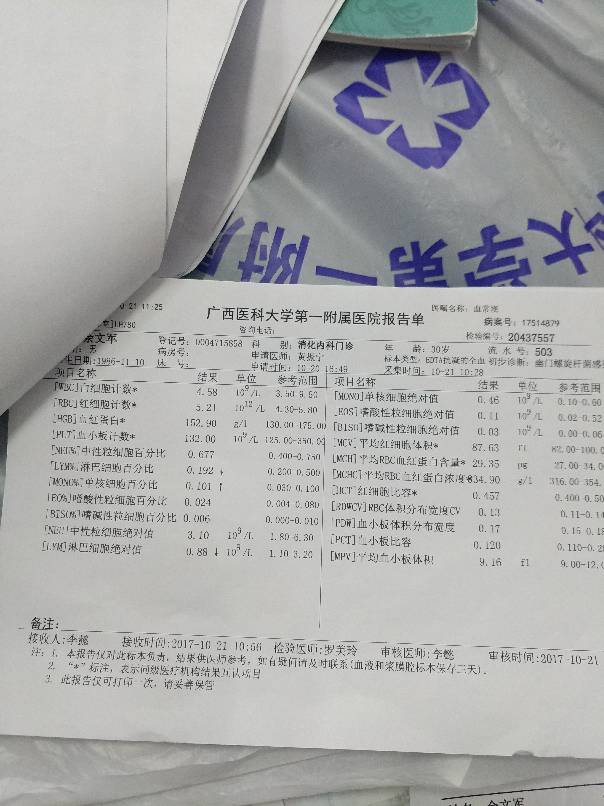 大学第一附属
0 21 11:25
广西医科大学第一附属医院报告单
医嘱名称: 血常规
病案号: 17514879
LH780
咨询电话:
检验编号: 20437557
余文军
登记号: 0004715858
科 别: 消化内科门诊
年 龄: 30岁
流 水 号: 503
男
病房号:
申请医师: 黄振宁
标本类型: EDTA抗凝全血
初步诊断: 幽门螺旋杆菌感
生日期:1986-11-10
床 号:
申请时间:10-20 16:49
采集时间:10-21 10:28
项目名称 结果 单位 参考范围
[WBC]白细胞计数* 4.58 10^9/L 3.50-9.50
[RBC]红细胞计数* 5.21 10^12/L 4.30-5.80
[HGB]血红蛋白* 152.90 g/l 130.00-175.00
[PLT]血小板计数* 132.00 10^9/L 125.00-350.00
[NEU%]中性粒细胞百分比 0.677 0.400-0.750
[LYM%]淋巴细胞百分比 0.192 ↓ 0.200-0.500
[MONO%]单核细胞百分比 0.101 ↑ 0.030-0.100
[EO%]嗜酸性粒细胞百分比 0.024 0.004-0.080
[BISO%]嗜碱性粒细胞百分比 0.006 0.000-0.010
[NEU]中性粒细胞绝对值 3.10 10^9/L 1.80-6.30
[LYM]淋巴细胞绝对值 0.88 ↓ 10^9/L 1.10-3.20
项目名称 结果 单位 参考范围
[MONO]单核细胞绝对值 0.46 10^9/L 0.10-0.60
[EOS]嗜酸性粒细胞绝对值 0.11 10^9/L 0.02-0.52
[BISO]嗜碱性粒细胞绝对值 0.03 10^9/L 0.00-0.06
[MCV]平均红细胞体积* 87.63 fl 82.00-100.0
[MCH]平均RBC血红蛋白含量* 29.35 pg 27.00-34.0
[MCHC]平均RBC血红蛋白浓度* 334.90 g/l 316.00-354.
[HCT]红细胞比容* 0.457 0.400-0.50
[RDWCV]RBC体积分布宽度CV 0.13 0.11-0.14
[PDW]血小板体积分布宽度 0.17 0.15-0.18
[PCT]血小板比容 0.120 0.110-0.28
[MPV]平均血小板体积 9.16 fl 9.00-12.0
备注:
接收人:李懿 接收时间:2017-10-21 10:56 检验医师:罗美玲 审核医师:李懿 审核时间:2017-10-21
注: 1. 本报告仅对此标本负责, 结果供医师参考, 如有疑问请及时联系(血液和浆膜腔标本保存三天).
2. “*”标注, 表示同级医疗机构结果互认项目
3. 此报告仅可打印一次, 请妥善保管
余文军